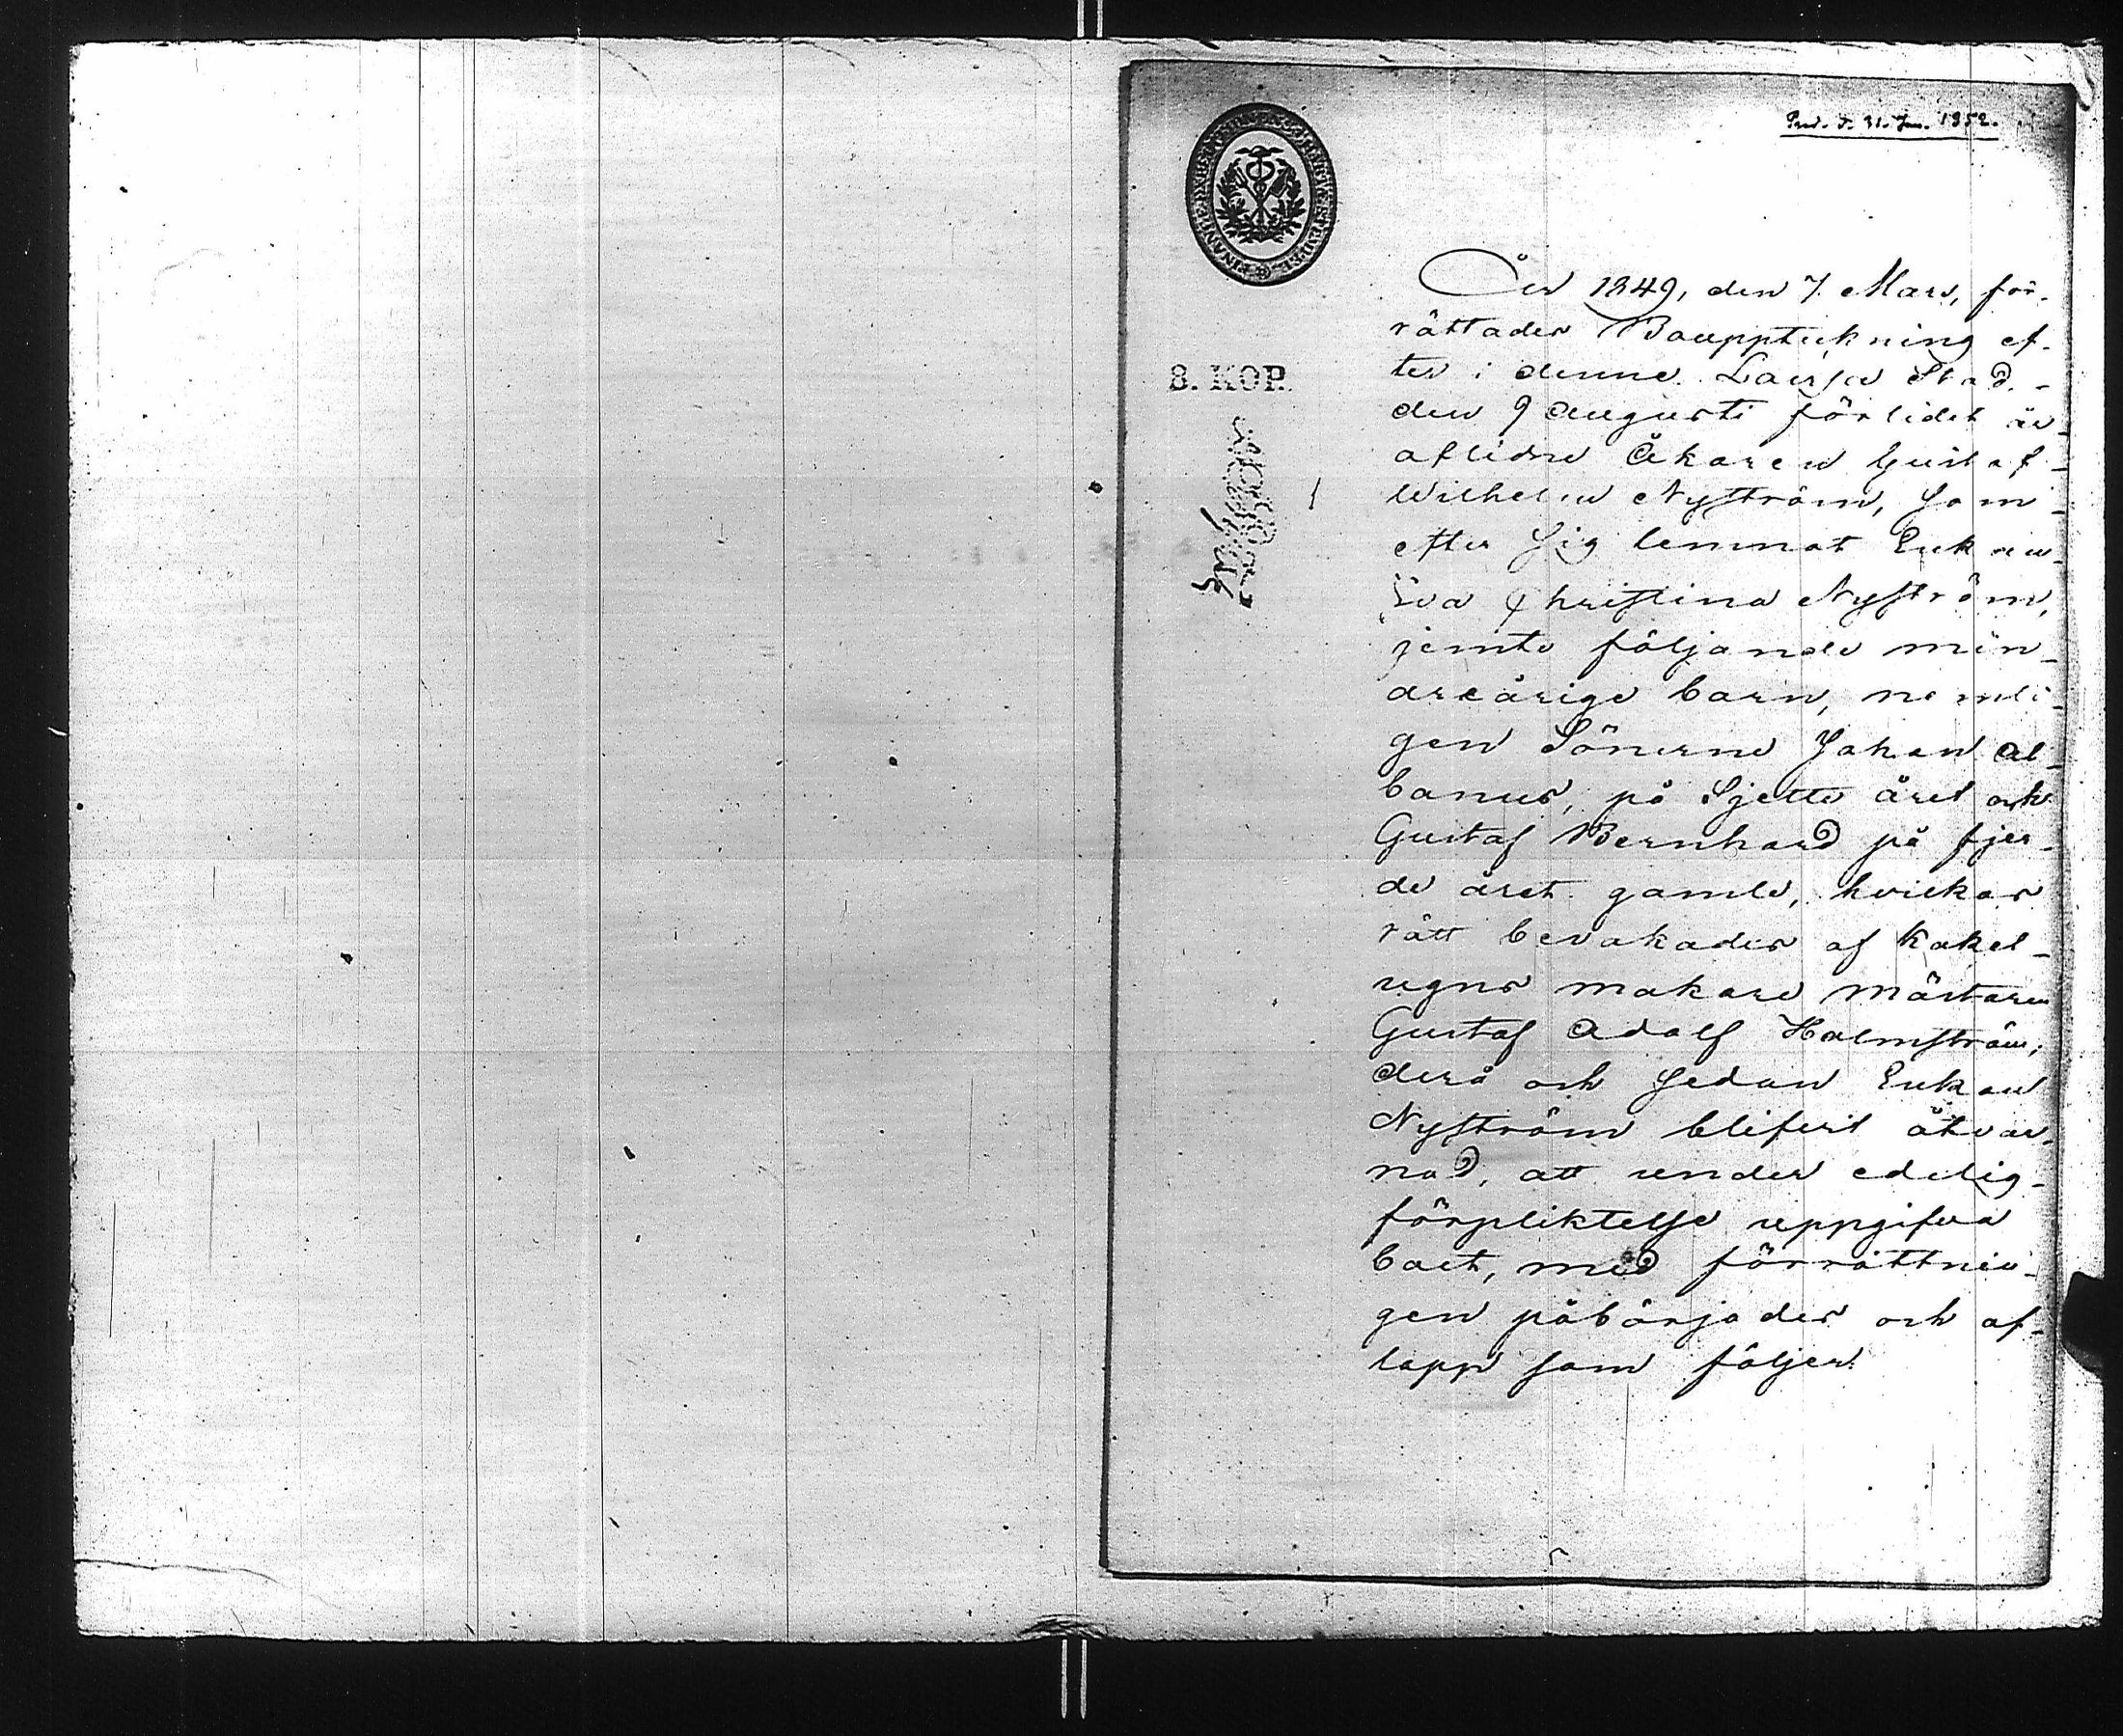 Prod. d. 31. Jan. 1852.
År 1849, den 7. Mars, för-
rättades Bouppteckning ef-
ter i denne Lovisa Stad -
8. KOP.
den 9 Augusti förlidet år
aflidne Åkaren Gustaf -
Wilhelm Nyström, som
efter sig lemnat Enkan
Eva Christina Nyström,
jemte följande min-
dreårige barn, nemli-
gen Sönerne Johan Al-
banus, på Sjette året och
Gustaf Bernhard på fjer-
de året gamle, hvilkas
rätt bevakades af Kakel-
ugns makare mästaren
Gustaf Adolf Holmström;
derå och sedan Enkan
Nyström blifvit åtvar-
nad, att under edelig-
förpliktelse uppgifva
boet, med förrättnin-
gen påbörjades och af-
lopp som följer: